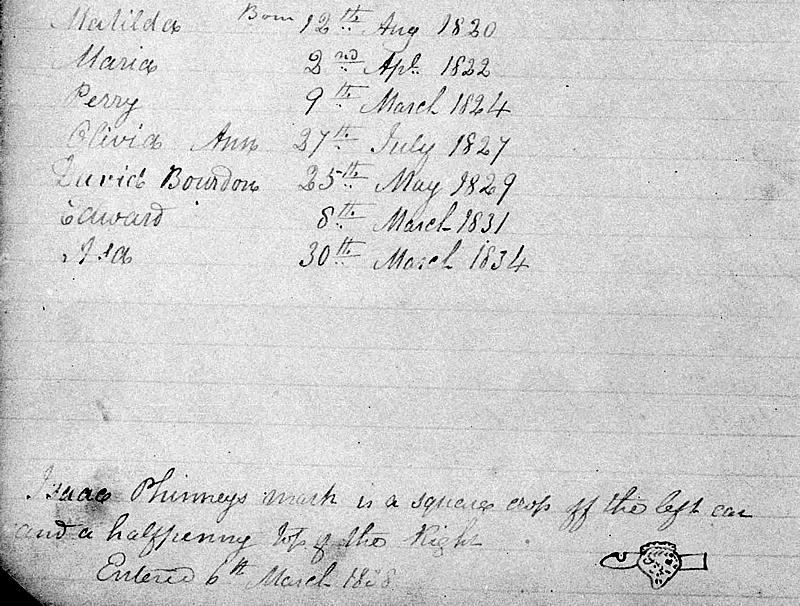 Matilda Born 12th Aug 1820
Maria 2nd Apl. 1822
Perry 9th March 1824
Olivia Ann 27th July 1827
David Bourdon 25th May 1829
Edward 8th March 1831
Isa 30th March 1834
Isaac Phinneys mark is a square crop off the left ear
and a halfpenny top of the Right
Entered 6th March